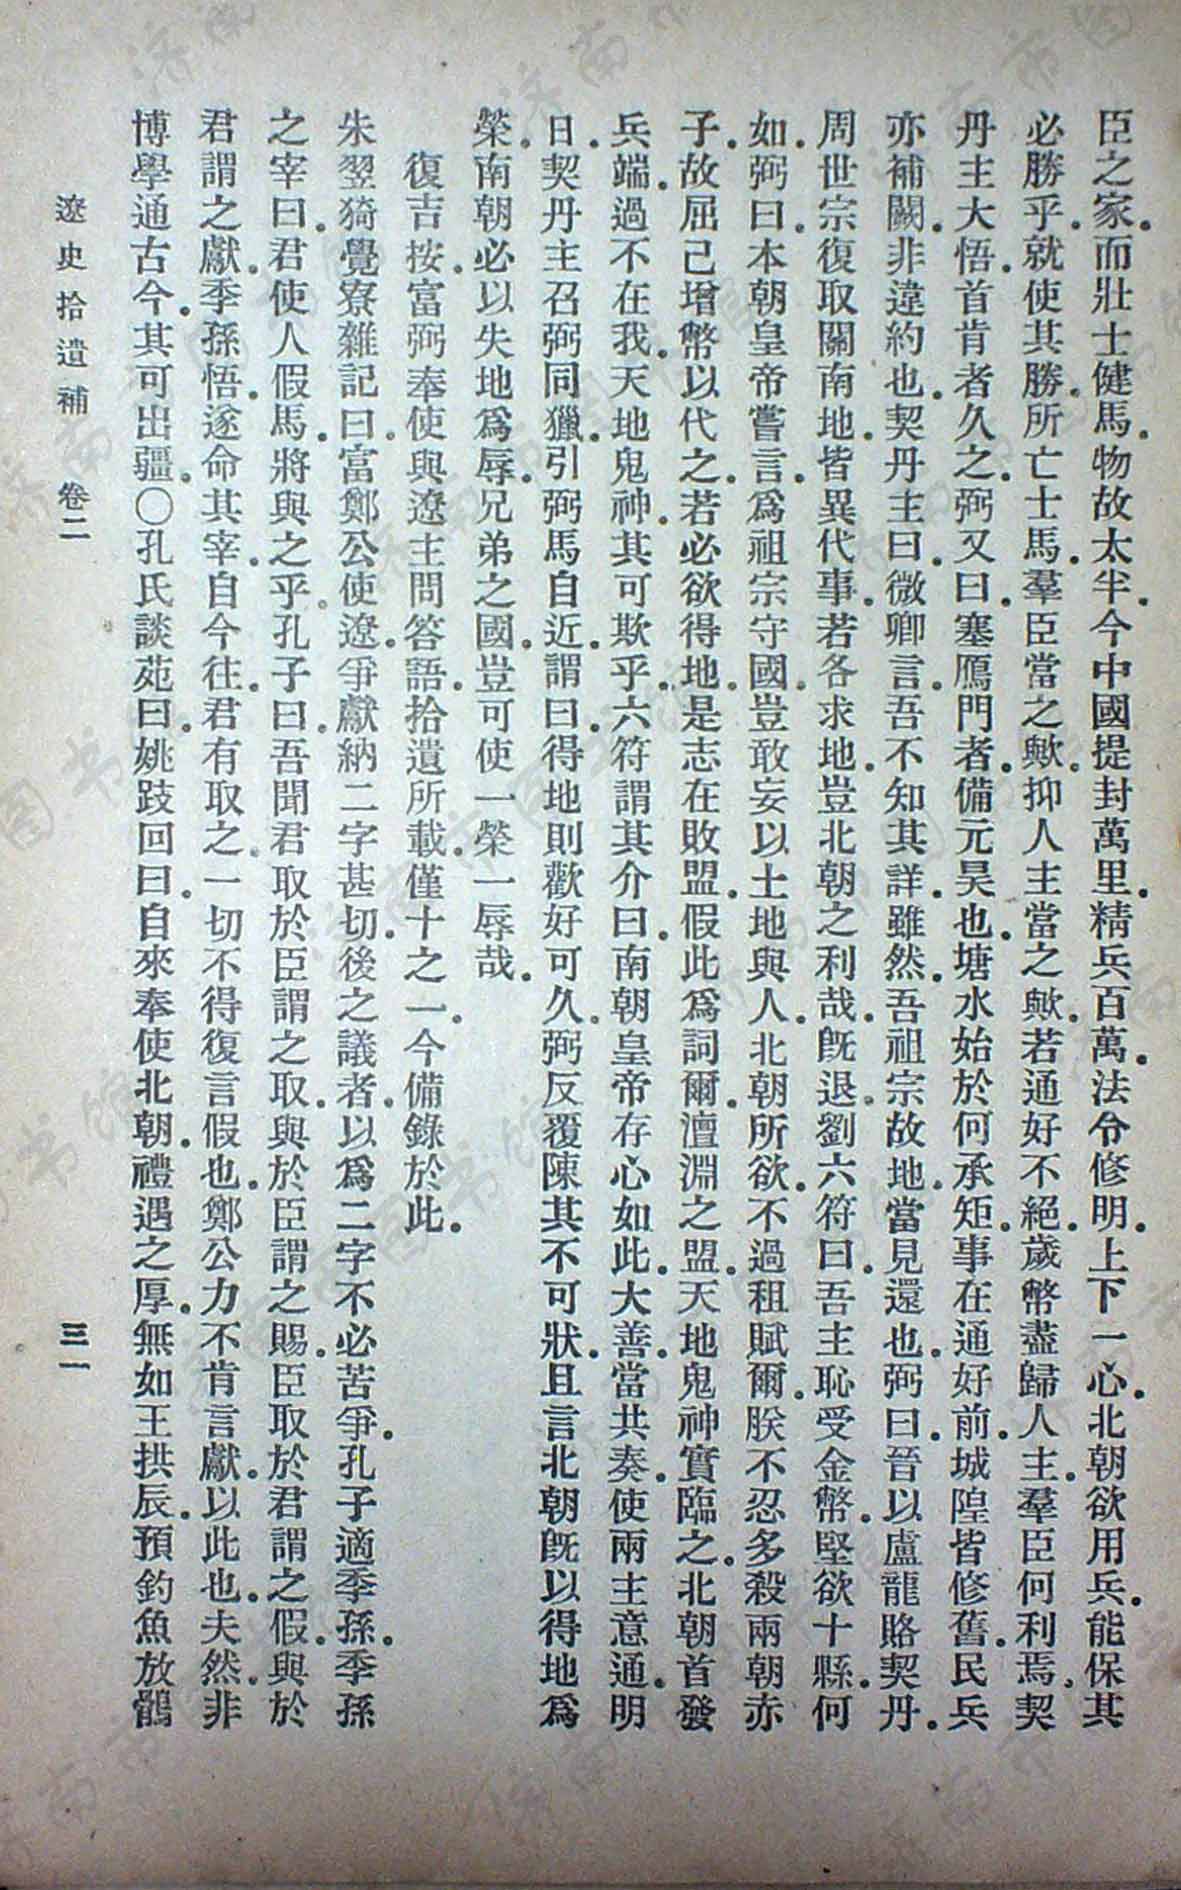 臣之家。而壯士健馬。物故太半。今中國提封萬里。精兵百萬。法令修明。上下一心。北朝欲用兵。能保其
必勝乎。就使其勝。所亡士馬。羣臣當之歟。抑人主當之歟。若通好不絕。歲幣盡歸人主。羣臣何利焉。契
丹主大悟。首肯者久之。弼又曰。塞鴈門者。備元昊也。塘水始於何承矩。事在通好前。城隍皆修舊。民兵
亦補闕。非違約也。契丹主曰。微卿言。吾不知其詳。雖然。吾祖宗故地。當見還也。弼曰。晉以盧龍賂契丹。
周世宗復取關南地。皆異代事。若各求地。豈北朝之利哉。旣退。劉六符曰。吾主恥受金幣。堅欲十縣。何
如。弼曰。本朝皇帝嘗言。爲祖宗守國。豈敢妄以土地與人。北朝所欲。不過租賦爾。朕不忍多殺兩朝赤
子。故屈己增幣以代之。若必欲得地。是志在敗盟。假此爲詞爾。澶淵之盟。天地鬼神實臨之。北朝首發
兵端。過不在我。天地鬼神。其可欺乎。六符謂其介曰。南朝皇帝存心如此。大善。當共奏。使兩主意通。明
日。契丹主召弼同獵。引弼馬自近。謂曰。得地則歡好可久。弼反覆陳其不可狀。且言北朝旣以得地爲
榮。南朝必以失地爲辱。兄弟之國。豈可使一榮一辱哉。
復吉按。富弼奉使與遼主問答語。拾遺所載。僅十之一。今備錄於此。
朱翌猗覺寮雜記曰。富鄭公使遼。爭獻納二字甚切。後之議者。以爲二字不必苦爭。孔子適季孫。季孫
之宰曰。君使人假馬。將與之乎。孔子曰。吾聞君取於臣謂之取。與於臣謂之賜。臣取於君謂之假。與於
君謂之獻。季孫悟。遂命其宰。自今往。君有取之。一切不得復言假也。鄭公力不肯言獻。以此也夫。然非
博學通古今。其可出疆。〇孔氏談苑曰。姚跂回曰。自來奉使北朝。禮遇之厚。無如王拱辰。預釣魚放鶻
遼史拾遺補 卷二 三一